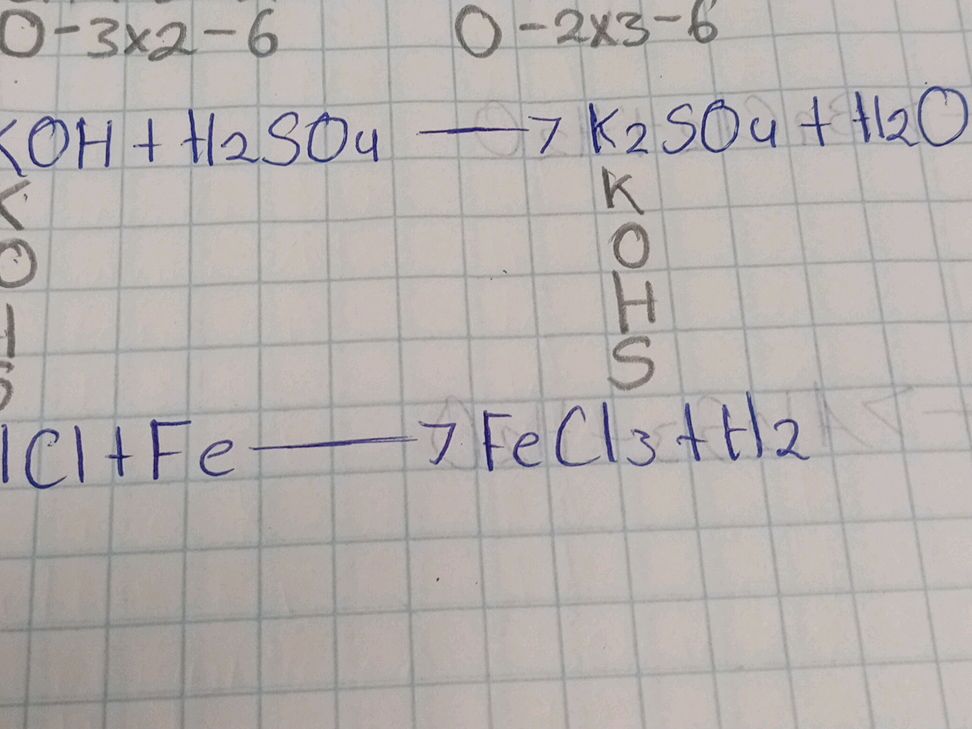 O-3x2-6 O-2x3-6
KOH + H2SO4 → K2SO4 + H2O
K K
O O
H H
S S
HCl + Fe → FeCl3 + H2